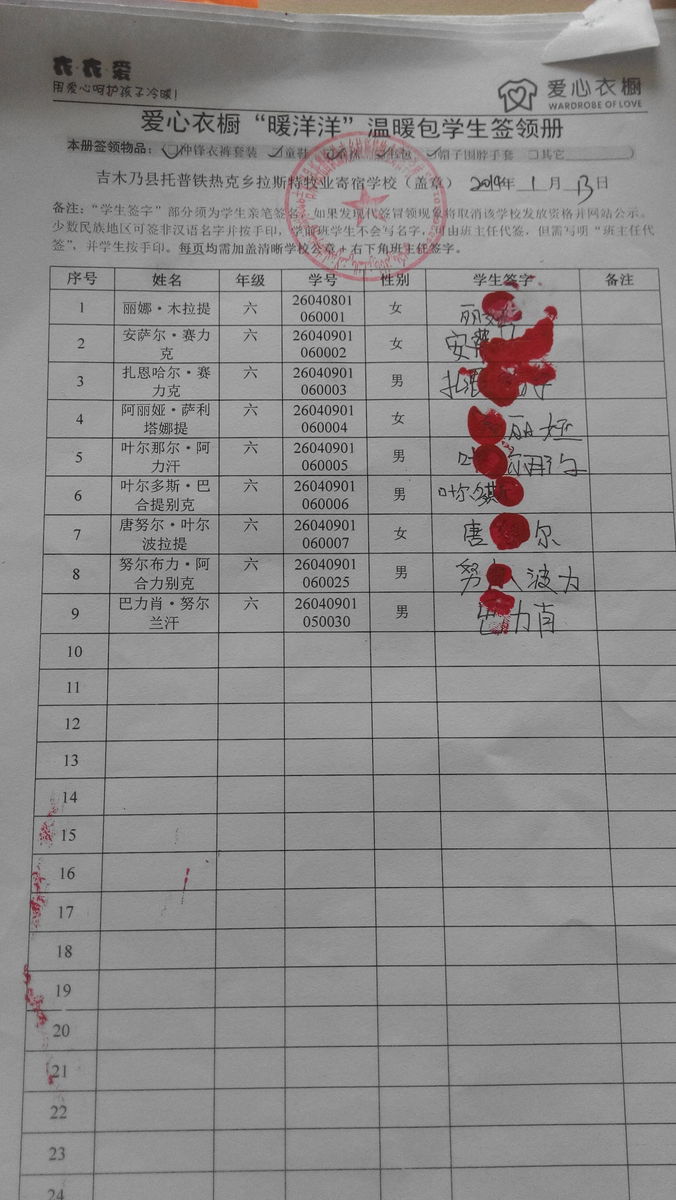 衣·衣·爱
用爱心呵护孩子冷暖!
爱心衣橱
WARDROBE OF LOVE
爱心衣橱“暖洋洋”温暖包学生签领册
本册签领物品: 冲锋衣裤套装 童鞋 书包 帽子围脖手套 □其它
吉木乃县托普铁热克乡拉斯特牧业寄宿学校(盖章) 2014年 1月 13日
备注:“学生签字”部分须为学生亲笔签名,如果发现代签冒领现象将取消该学校发放资格并网站公示。
少数民族地区可签非汉语名字并按手印,学前班学生不会写名字,可由班主任代签,但需写明“班主任代
签”,并学生按手印。每页均需加盖清晰学校公章+右下角班主任签字。
序号 姓名 年级 学号 性别 学生签字 备注
1 丽娜·木拉提 六 26040801 060001 女 丽
2 安萨尔·赛力克 六 26040901 060002 女 安
3 扎恩哈尔·赛力克 六 26040901 060003 男 扎
4 阿丽娅·萨利塔娜提 六 26040901 060004 女 丽娅
5 叶尔那尔·阿力汗 六 26040901 060005 男 叶
6 叶尔多斯·巴合提别克 六 26040901 060006 男 叶尔
7 唐努尔·叶尔波拉提 六 26040901 060007 女 唐 尔
8 努尔布力·阿合力别克 六 26040901 060025 男 努 波力
9 巴力肖·努尔兰汗 六 26040901 050030 男 巴力肖
10
11
12
13
14
15
16
17
18
19
20
21
22
23
24